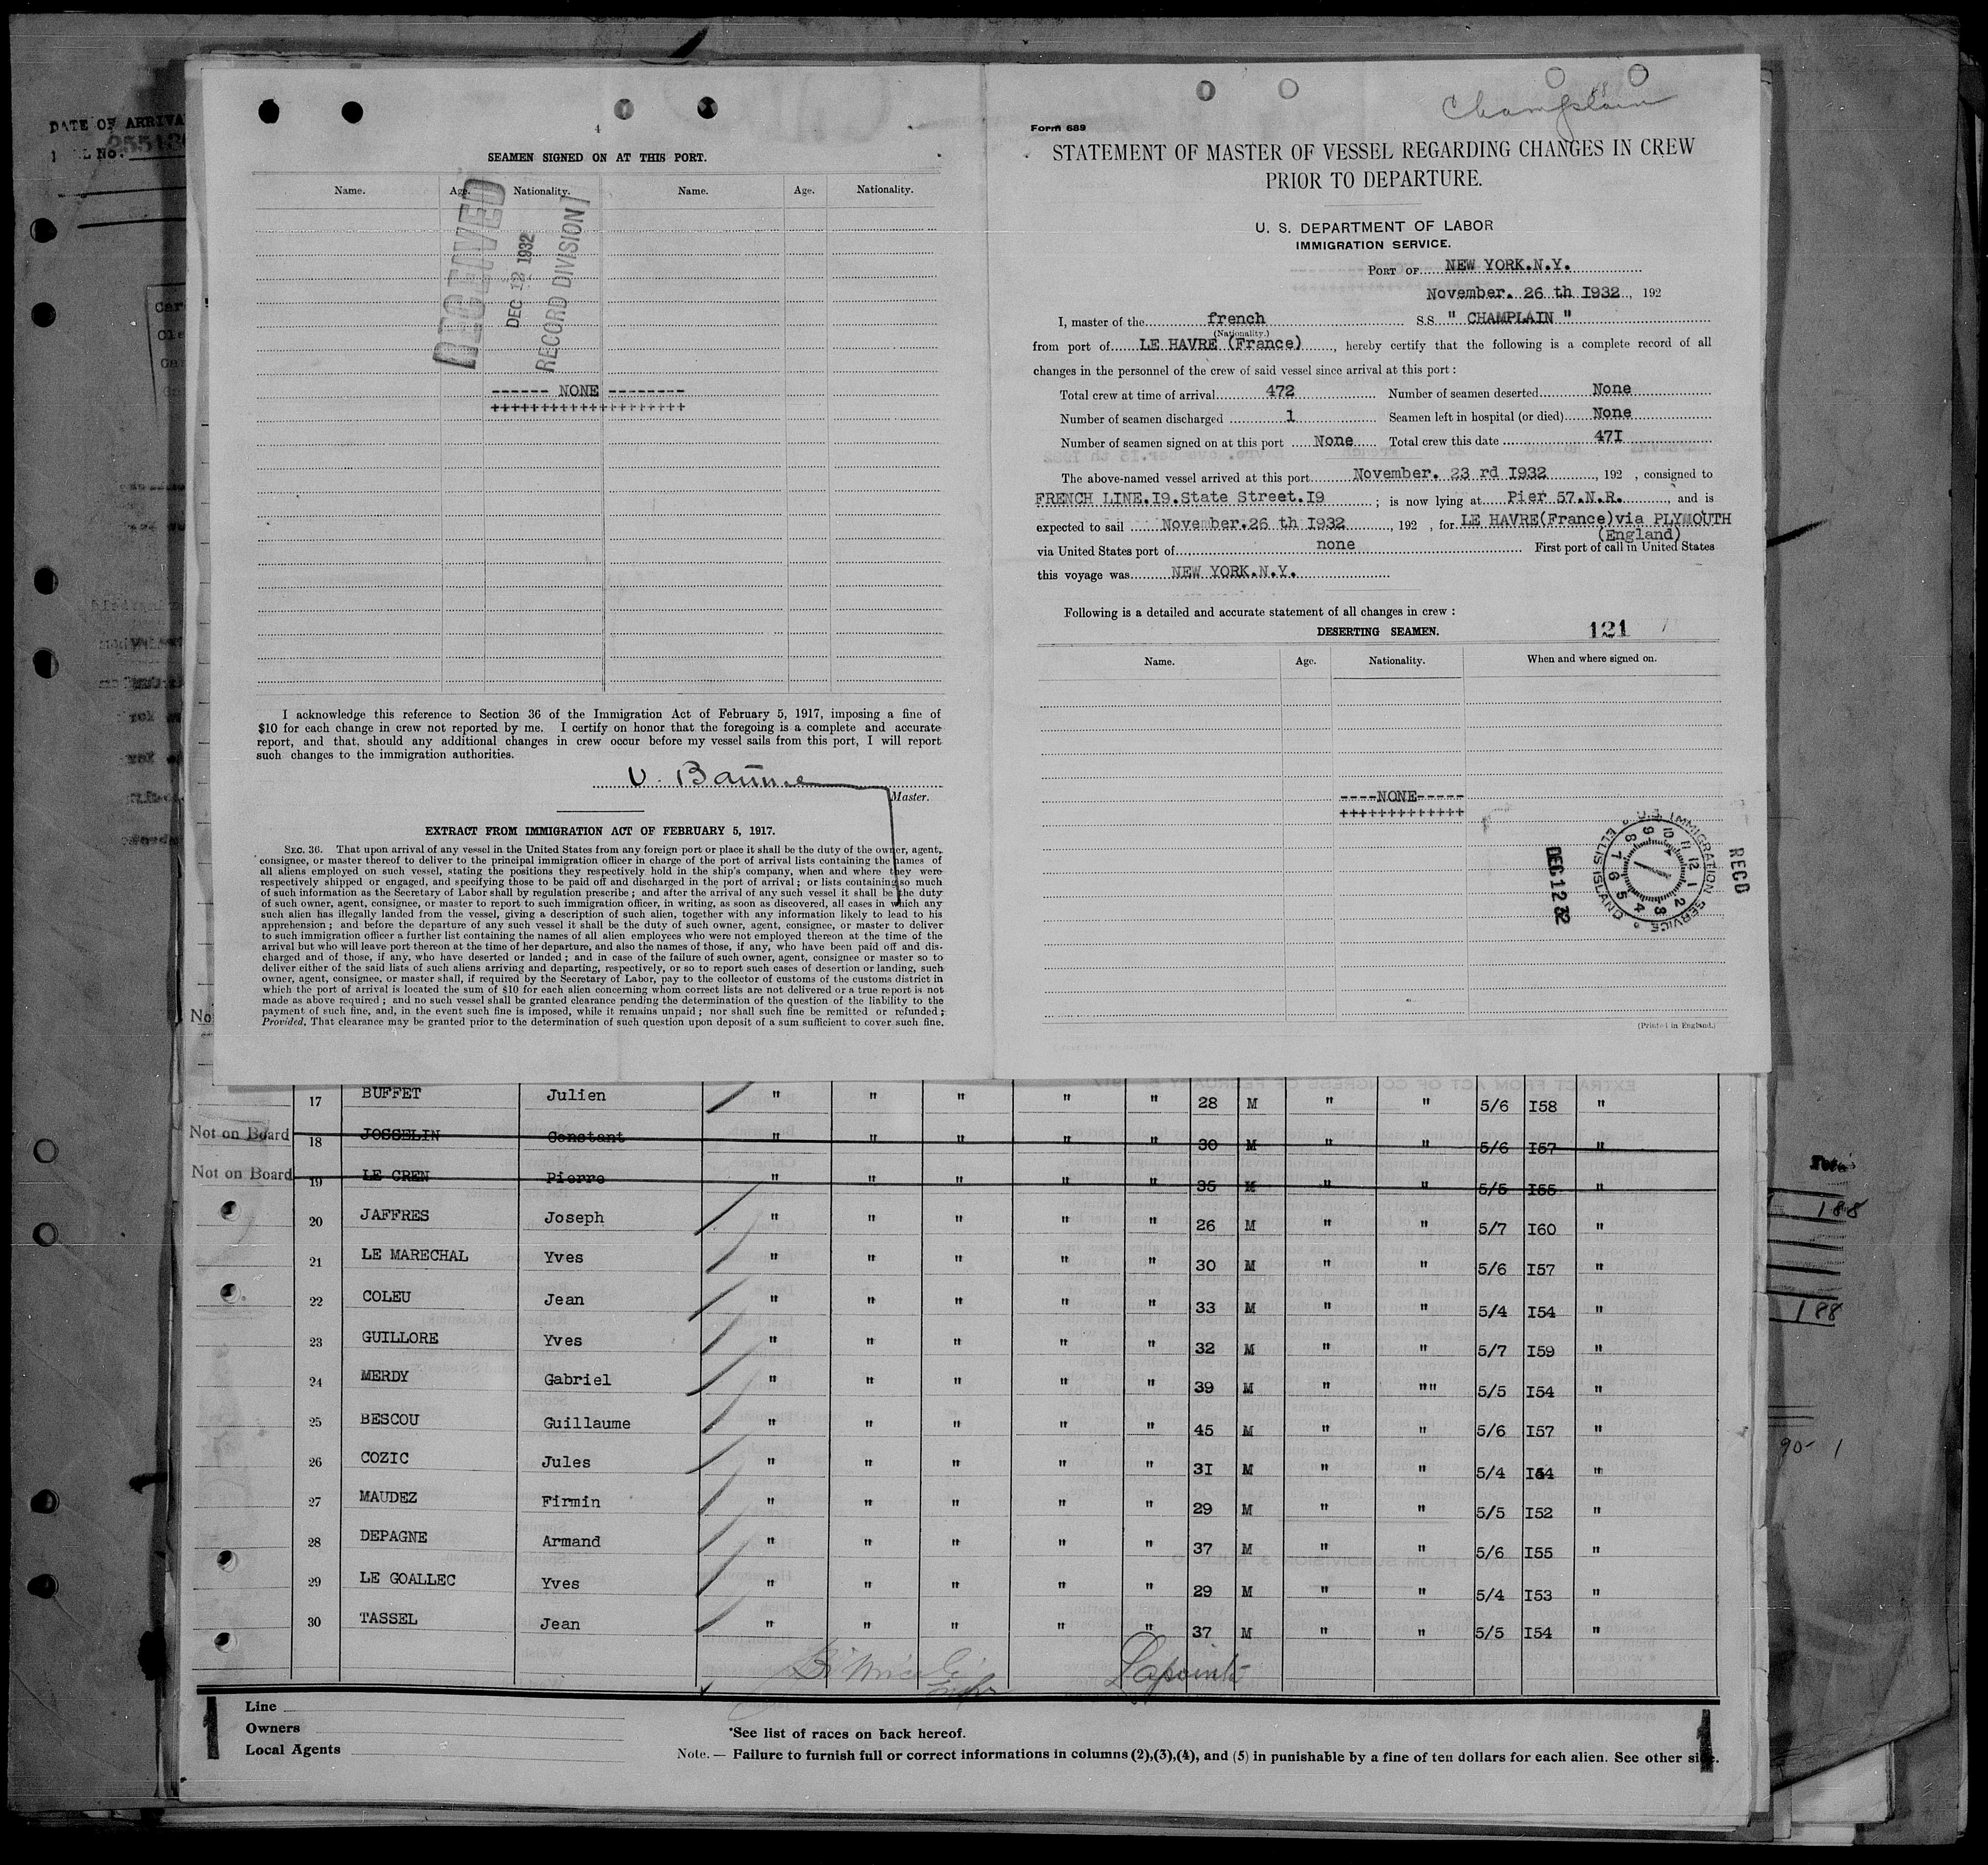 DATE OF ARRIVA
No.
4
SEAMEN SIGNED ON AT THIS PORT.
Name. Age. Nationality. Name. Age. Nationality.
RECEIVED
DEC 12 1932
RECORD DIVISION
------ NONE --------
++++++++++++++++++++
I acknowledge this reference to Section 36 of the Immigration Act of February 5, 1917, imposing a fine of
$10 for each change in crew not reported by me. I certify on honor that the foregoing is a complete and accurate
report, and that, should any additional changes in crew occur before my vessel sails from this port, I will report
such changes to the immigration authorities.
Master.
EXTRACT FROM IMMIGRATION ACT OF FEBRUARY 5, 1917.
SEC. 36. That upon arrival of any vessel in the United States from any foreign port or place it shall be the duty of the owner, agent,
consignee, or master thereof to deliver to the principal immigration officer in charge of the port of arrival lists containing the names of
all aliens employed on such vessel, stating the positions they respectively hold in the ship's company, when and where they were
respectively shipped or engaged, and specifying those to be paid off and discharged in the port of arrival; or lists containing so much
of such information as the Secretary of Labor shall by regulation prescribe; and after the arrival of any such vessel it shall be the duty
of such owner, agent, consignee, or master to report to such immigration officer, in writing, as soon as discovered, all cases in which any
such alien has illegally landed from the vessel, giving a description of such alien, together with any information likely to lead to his
apprehension; and before the departure of any such vessel it shall be the duty of such owner, agent, consignee, or master to deliver
to such immigration officer a further list containing the names of all alien employees who were not employed thereon at the time of the
arrival but who will leave port thereon at the time of her departure, and also the names of those, if any, who have been paid off and dis-
charged and of those, if any, who have deserted or landed; and in case of the failure of such owner, agent, consignee or master so to
deliver either of the said lists of such aliens arriving and departing, respectively, or so to report such cases of desertion or landing, such
owner, agent, consignee, or master shall, if required by the Secretary of Labor, pay to the collector of customs of the customs district in
which the port of arrival is located the sum of $10 for each alien concerning whom correct lists are not delivered or a true report is not
made as above required; and no such vessel shall be granted clearance pending the determination of the question of the liability to the
payment of such fine, and, in the event such fine is imposed, while it remains unpaid; nor shall such fine be remitted or refunded;
Provided, That clearance may be granted prior to the determination of such question upon deposit of a sum sufficient to cover such fine.
Champlain
Form 689
STATEMENT OF MASTER OF VESSEL REGARDING CHANGES IN CREW
PRIOR TO DEPARTURE.
U. S. DEPARTMENT OF LABOR
IMMIGRATION SERVICE.
PORT OF NEW YORK.N.Y.
November. 26 th I932, 192
I, master of the french S.S. " CHAMPLAIN "
(Nationality.)
from port of LE HAVRE (France), hereby certify that the following is a complete record of all
changes in the personnel of the crew of said vessel since arrival at this port:
Total crew at time of arrival 472 Number of seamen deserted None
Number of seamen discharged 1 Seamen left in hospital (or died) None
Number of seamen signed on at this port None Total crew this date 47I
The above-named vessel arrived at this port November. 23 rd I932, 192 , consigned to
FRENCH LINE.I9.State Street.I9; is now lying at Pier 57.N.R., and is
expected to sail November.26 th I932, 192 , for LE HAVRE(France)via PLYMOUTH
(England)
via United States port of none First port of call in United States
this voyage was NEW YORK.N.Y.
Following is a detailed and accurate statement of all changes in crew:
DESERTING SEAMEN. 121
Name. Age. Nationality. When and where signed on.
----NONE-----
+++++++++++++
U.S. IMMIGRATION SERVICE ELLIS ISLAND
RECD
DEC 12 32
(Printed in England.)
17 BUFFET Julien " " " " " 28 M " " 5/6 I58 "
Not on Board 18 JOSSELIN Constant " " " " " 30 M " " 5/6 I57 "
Not on Board 19 LE CREN Pierre " " " " " 35 M " " 5/5 I55 "
20 JAFFRES Joseph " " " " " 26 M " " 5/7 I60 "
21 LE MARECHAL Yves " " " " " 30 M " " 5/6 I57 "
22 COLEU Jean " " " " " 33 M " " 5/4 I54 "
23 GUILLORE Yves " " " " " 32 M " " 5/7 I59 "
24 MERDY Gabriel " " " " " 39 M " "" 5/5 I54 "
25 BESCOU Guillaume " " " " " 45 M " " 5/6 I57 "
26 COZIC Jules " " " " " 3I M " " 5/4 "
27 MAUDEZ Firmin " " " " " 29 M " " 5/5 I52 "
28 DEPAGNE Armand " " " " " 37 M " " 5/6 I55 "
29 LE GOALLEC Yves " " " " " 29 M " " 5/4 I53 "
30 TASSEL Jean " " " " " 37 M " " 5/5 I54 "
Lapointe
188
188
90- 1
1 Line
Owners
Local Agents
*See list of races on back hereof.
Note. — Failure to furnish full or correct informations in columns (2),(3),(4), and (5) in punishable by a fine of ten dollars for each alien. See other side.
1